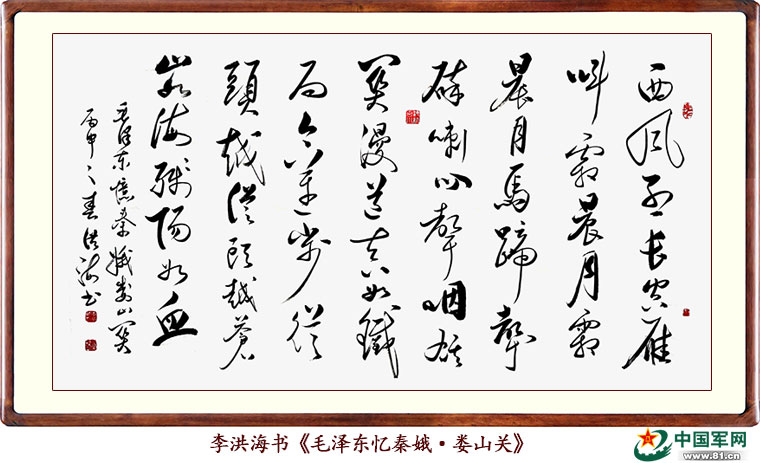 西风烈长空雁
叫霜晨月霜
晨月馬蹄聲
碎喇叭聲咽雄
關漫道真如鐵
而今迈步從
頭越從頭越蒼
山如海残阳如血
毛泽东憶秦娥娄山關
丙申之春洪海书
李洪海书《毛泽东忆秦娥·娄山关》
中国军网
www.81.cn